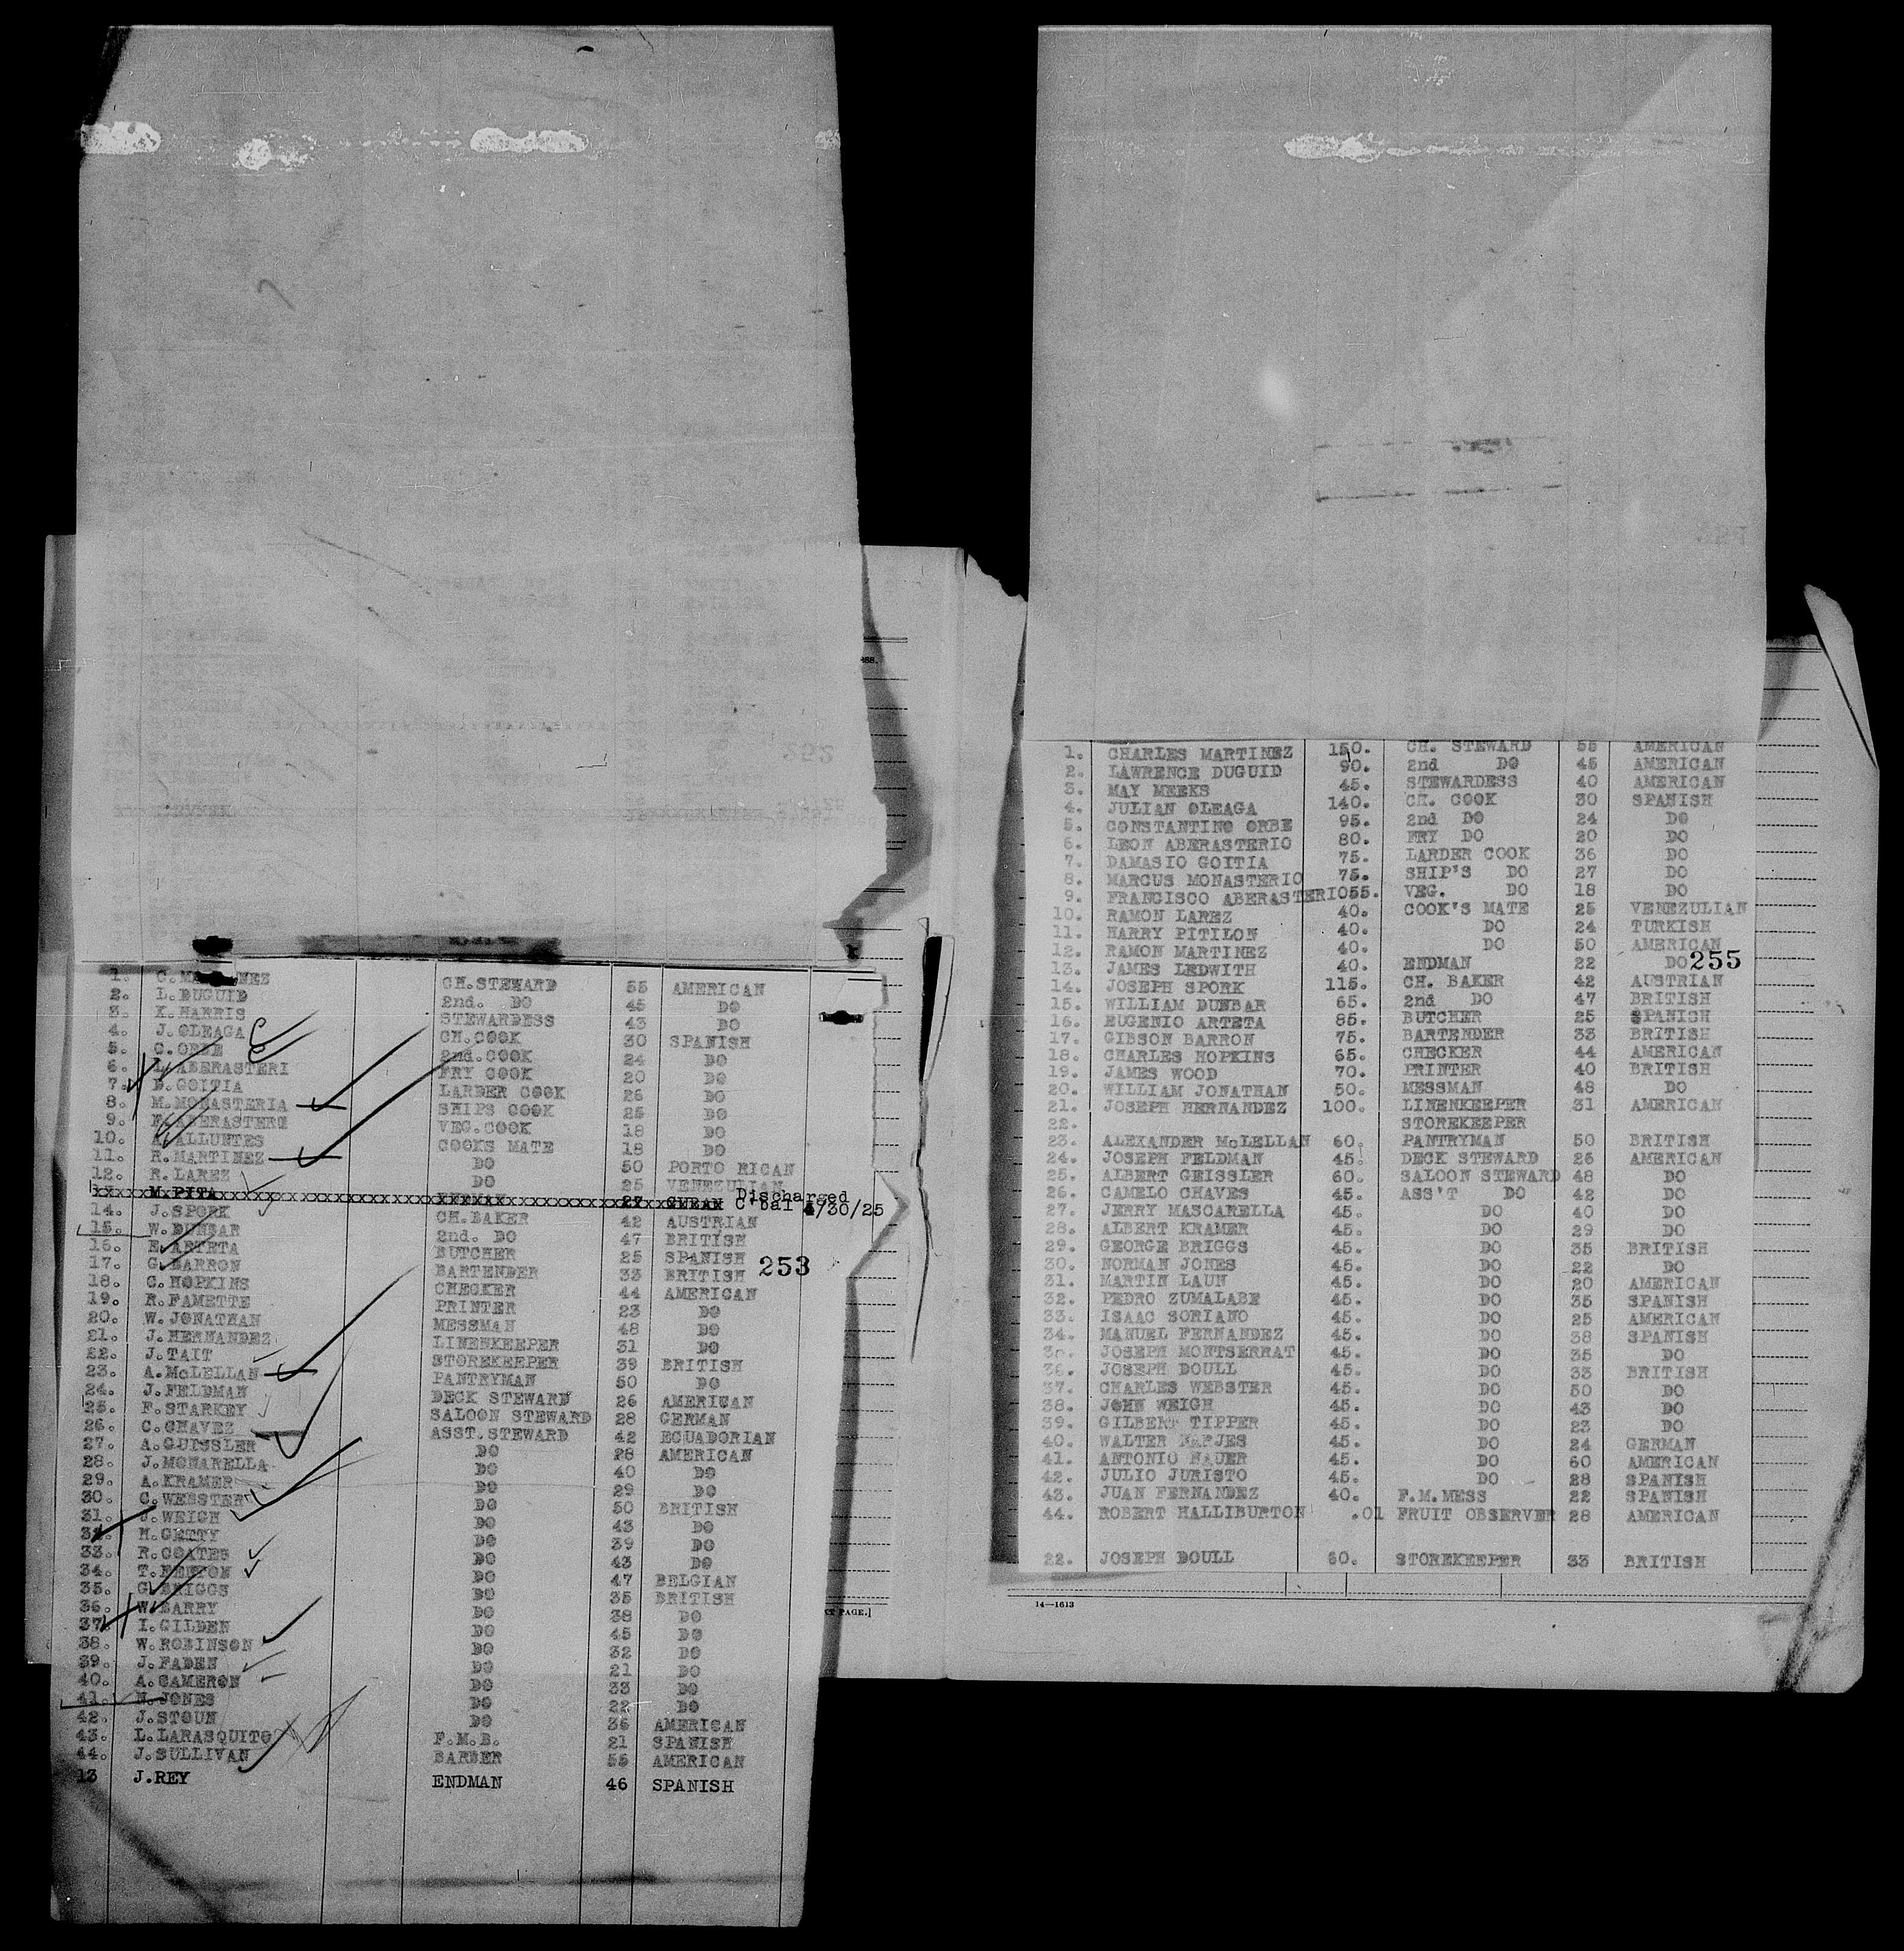 1. C.MA NEZ CH.STEWARD 55 AMERICAN
2. L.DUGUID 2nd. DO 45 DO
3. K.HARRIS STEWARDESS 43 DO
4. J.OLEAGA CH.COOK 30 SPANISH
5. C.ORBE 2nd.COOK 24 DO
6. L.ABERASTERI FRY COOK 20 DO
7. D.GOITIA LARDER COOK 26 DO
8. M.MONASTERIA SHIPS COOK 25 DO
9. F.ABERASTERO VEG.COOK 18 DO
10. A.ALLUNTES COOKS MATE 18 DO
11. R.MARTINEZ DO 50 PORTO RICAN
12. R.LAREZ DO 25 VENEZULIAN
M.PITA ENDMAN 27 CUBAN Discharged C'bal 4/30/25
14. J.SPORK CH.BAKER 42 AUSTRIAN
15. W.DUNBAR 2nd. DO 47 BRITISH
16. E.ARTETA BUTCHER 25 SPANISH
17. G.BARRON BARTENDER 33 BRITISH 253
18. C.HOPKINS CHECKER 44 AMERICAN
19. R.FAMETTE PRINTER 23 DO
20. W.JONATHAN MESSMAN 48 DO
21. J.HERNANDEZ LINENKEEPER 31 DO
22. J.TAIT STOREKEEPER 39 BRITISH
23. A.McLELLAN PANTRYMAN 50 DO
24. J.FELDMAN DECK STEWARD 26 AMERICAN
25. F.STARKEY SALOON STEWARD 28 GERMAN
26. C.CHAVEZ ASST.STEWARD 42 ECUADORIAN
27. A.GUISSLER DO 28 AMERICAN
28. J.MONARELLA DO 40 DO
29. A.KRAMER DO 29 DO
30. C.WEBSTER DO 50 BRITISH
31. J.WEIGH DO 43 DO
32. M.GETTY DO 39 DO
33. R.COATES DO 43 DO
34. T.FENTON DO 47 BELGIAN
35. G.BRIGGS DO 35 BRITISH
36. W.BARRY DO 38 DO
37. I.GILDEN DO 45 DO
38. W.ROBINSON DO 32 DO
39. J.FADEN DO 21 DO
40. A.CAMERON DO 33 DO
41. N.JONES DO 22 DO
42. J.STOUN DO 36 AMERICAN
43. L.LARASQUITO F.M.B. 21 SPANISH
44. J.SULLIVAN BARBER 55 AMERICAN
13 J.REY ENDMAN 46 SPANISH
XT PAGE.]
1. CHARLES MARTINEZ 150. CH. STEWARD 55 AMERICAN
2. LAWRENCE DUGUID 90. 2nd DO 45 AMERICAN
3. MAY MEEKS 45. STEWARDESS 40 AMERICAN
4. JULIAN OLEAGA 140. CH. COOK 30 SPANISH
5. CONSTANTINO ORBE 95. 2nd DO 24 DO
6. LEON ABERASTERIO 80. FRY DO 20 DO
7. DAMASIO GOITIA 75. LARDER COOK 36 DO
8. MARCUS MONASTERIO 75. SHIP'S DO 27 DO
9. FRANCISCO ABERASTERIO55. VEG. DO 18 DO
10. RAMON LAREZ 40. COOK'S MATE 25 VENEZULIAN
11. HARRY PITILON 40. DO 24 TURKISH
12. RAMON MARTINEZ 40. DO 50 AMERICAN
13. JAMES LEDWITH 40. ENDMAN 22 DO 255
14. JOSEPH SPORK 115. CH. BAKER 42 AUSTRIAN
15. WILLIAM DUNBAR 65. 2nd DO 47 BRITISH
16. EUGENIO ARTETA 85. BUTCHER 25 SPANICH
17. GIBSON BARRON 75. BARTENDER 33 BRITISH
18. CHARLES HOPKINS 65. CHECKER 44 AMERICAN
19. JAMES WOOD 70. PRINTER 40 BRITISH
20. WILLIAM JONATHAN 50. MESSMAN 48 DO
21. JOSEPH HERNANDEZ 100. LINENKEEPER 31 AMERICAN
22. STOREKEEPER
23. ALEXANDER McLELLAN 60. PANTRYMAN 50 BRITISH
24. JOSEPH FELDMAN 45. DECK STEWARD 26 AMERICAN
25. ALBERT GEISSLER 60. SALOON STEWARD 48 DO
26. CAMELO CHAVES 45. ASS'T DO 42 DO
27. JERRY MASCARELLA 45. DO 40 DO
28. ALBERT KRAMER 45. DO 29 DO
29. GEORGE BRIGGS 45. DO 35 BRITISH
30. NORMAN JONES 45. DO 22 DO
31. MARTIN LAUN 45. DO 20 AMERICAN
32. PEDRO ZUMALABE 45. DO 35 SPANISH
33. ISAAC SORIANO 45. DO 25 AMERICAN
34. MANUEL FERNANDEZ 45. DO 38 SPANISH
35. JOSEPH MONTSERRAT 45. DO 35 DO
36. JOSEPH DOULL 45. DO 33 BRITISH
37. CHARLES WEBSTER 45. DO 50 DO
38. JOHN WEIGH 45. DO 43 DO
39. GILBERT TIPPER 45. DO 23 DO
40. WALTER NARJES 45. DO 24 GERMAN
41. ANTONIO NAUER 45. DO 60 AMERICAN
42. JULIO JURISTO 45. DO 28 SPANISH
43. JUAN FERNANDEZ 40. F.M.MESS 22 SPANISH
44. ROBERT HALLIBURTON .01 FRUIT OBSERVER 28 AMERICAN
22. JOSEPH DOULL 60. STOREKEEPER 33 BRITISH
14—1613